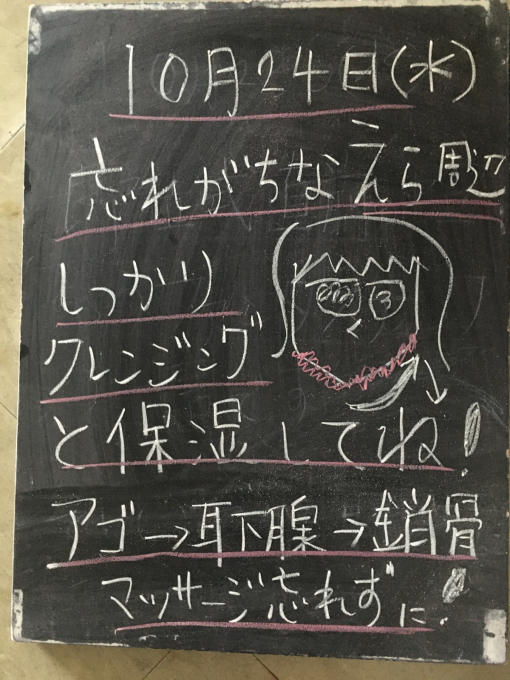 10月24日(水)
忘れがちなえら周辺
しっかり
クレンジング
と保湿してね!
アゴ→耳下腺→鎖骨
マッサージ忘れずに!